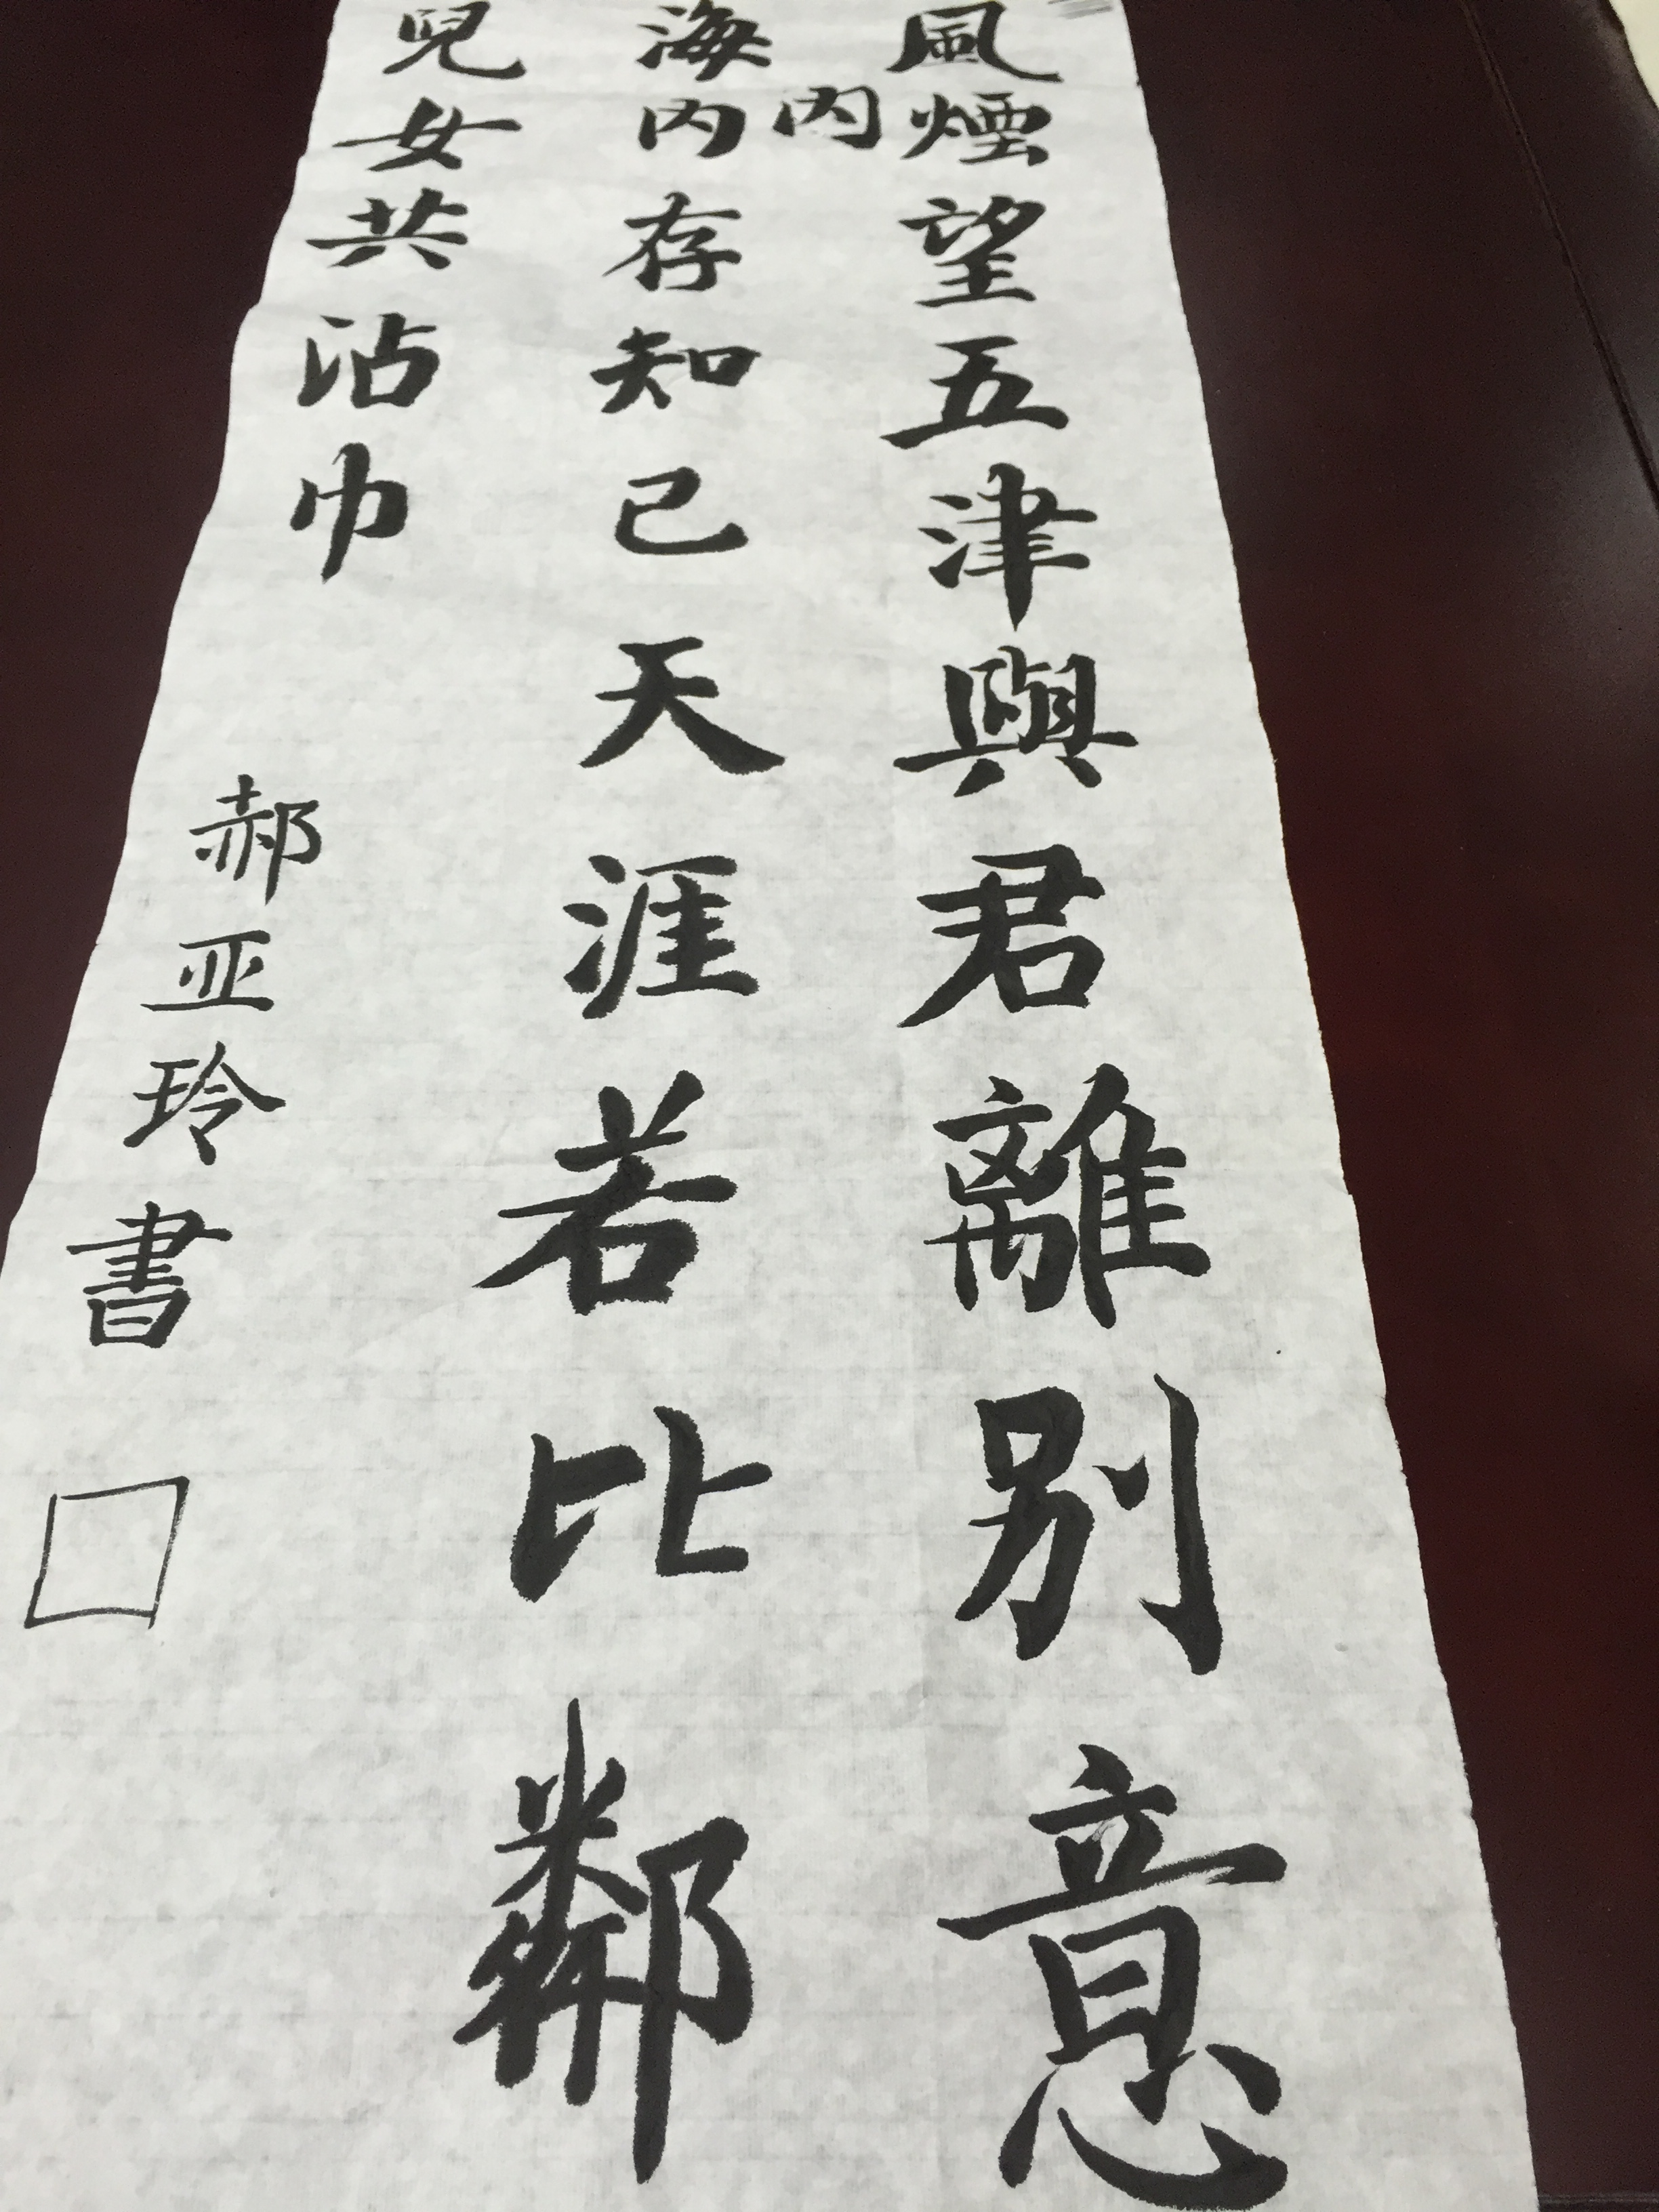 風煙望五津與君離別意
内
海内存知己天涯若比鄰
兒女共沾巾
郝亚玲書